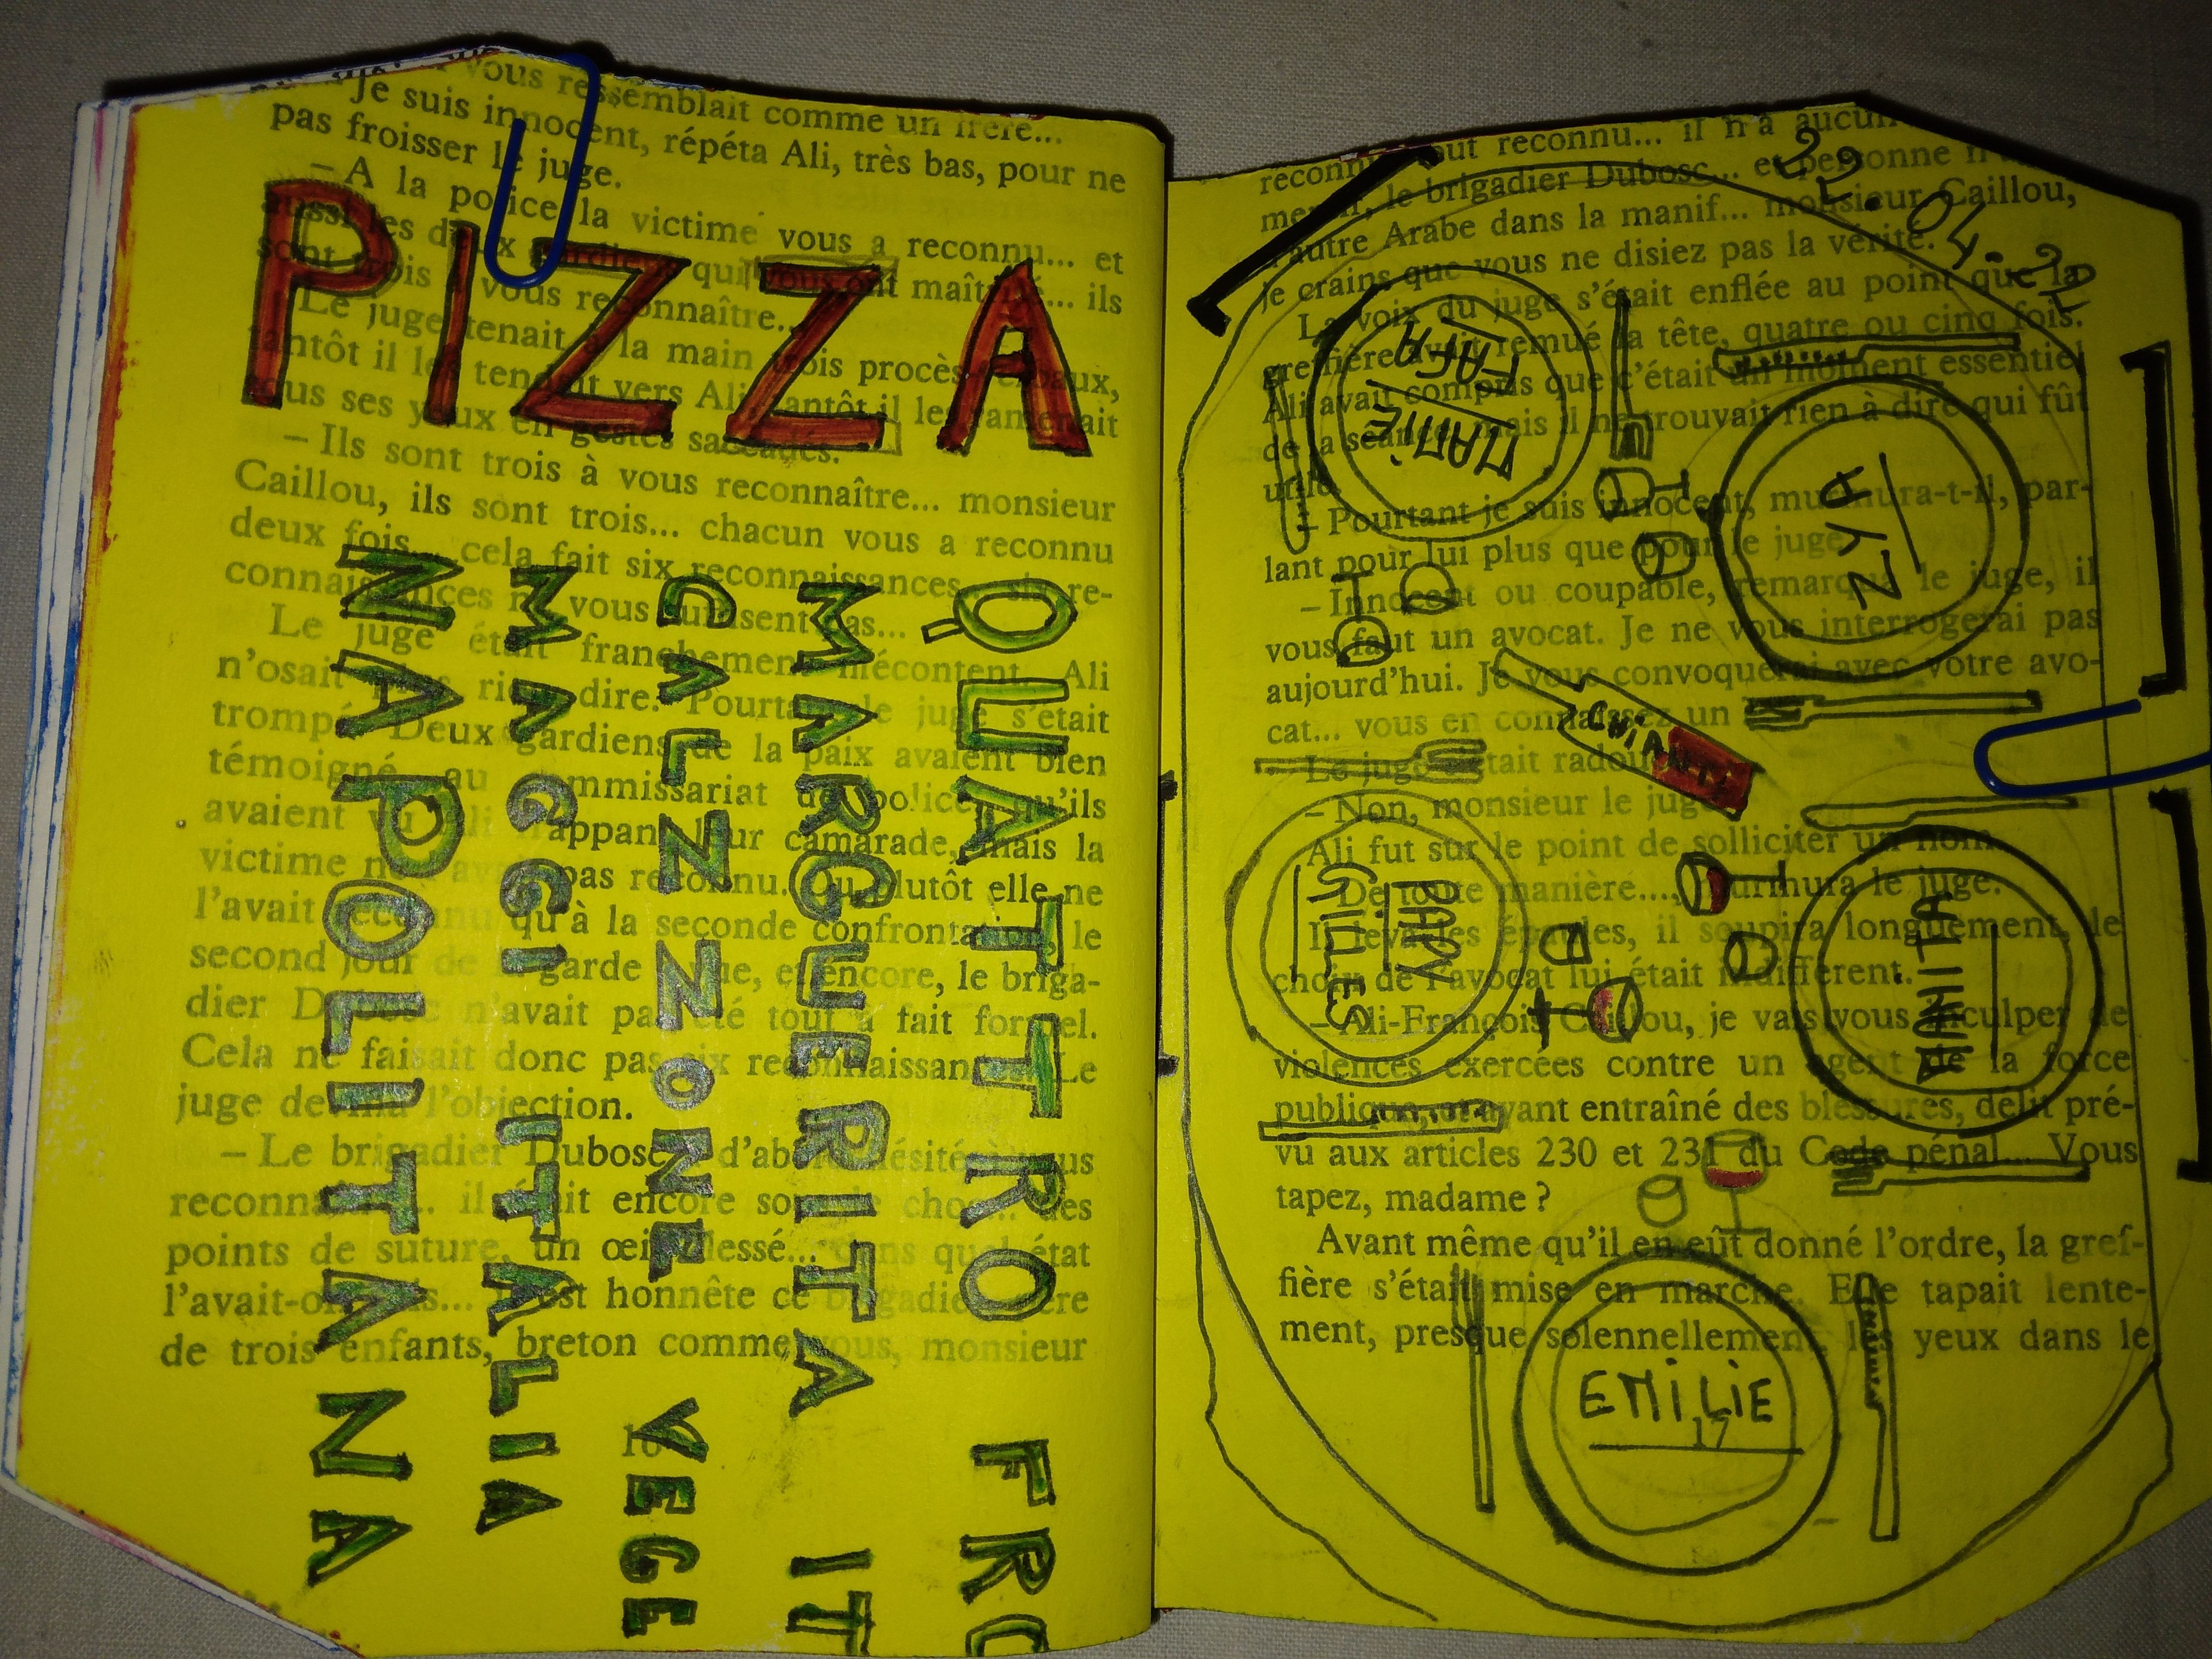 vous ressemblait comme un frère...
Je suis innocent, répéta Ali, très bas, pour ne
pas froisser le juge.
– A la police la victime vous a reconnu... et
aussi les deux gardiens qui vous ont maîtrisé... ils
sont trois à vous reconnaître...
Le juge tenait à la main trois procès-verbaux,
tantôt il les tendait vers Ali, tantôt il les ramenait
sous ses yeux en gestes saccadés.
– Ils sont trois à vous reconnaître... monsieur
Caillou, ils sont trois... chacun vous a reconnu
deux fois... cela fait six reconnaissances... re-
connaissances ne vous suffisent pas...
Le juge était franchement mécontent. Ali
n'osait plus rien dire. Pourtant le juge s'était
trompé. Deux gardiens de la paix avaient bien
témoigné au commissariat de police qu'ils
avaient vu Ali frappant leur camarade, mais la
victime ne l'avait pas reconnu. Ou plutôt elle ne
l'avait reconnu qu'à la seconde confrontation, le
second jour de garde vue, et encore, le briga-
dier Dubosc n'avait pas été tout à fait formel.
Cela ne faisait donc pas six reconnaissances. Le
juge devina l'objection.
– Le brigadier Dubosc d'abord hésité à vous
reconnaître... il était encore sous le choc... des
points de suture, un œil blessé... dans quel état
l'avait-on mis... il est honnête ce brigadier, père
de trois enfants, breton comme vous, monsieur
16
PIZZA
QUATTRO FRO
MARGUERITA IT
CALZZONE VEGE
MAGGI ITALIA
NAPOLITANA
reconnu... il n'a aucun
le brigadier Dubosc... et personne n'a
autre Arabe dans la manif... monsieur Caillou,
je crains que vous ne disiez pas la vérité.
La voix du juge s'était enflée au point que la
greffière avait remué la tête, quatre ou cinq fois.
Ali avait compris que c'était un moment essentiel
de la séance, mais il ne trouvait rien à dire qui fût
utile.
– Pourtant je suis innocent, murmura-t-il, par-
lant pour lui plus que pour le juge.
– Innocent ou coupable, remarqua le juge, il
vous faut un avocat. Je ne vous interrogerai pas
aujourd'hui. Je vous convoquerai avec votre avo-
cat... vous en connaissez un
Le juge s'était radouci
– Non, monsieur le juge.
Ali fut sur le point de solliciter un nom.
– De toute manière..., murmura le juge.
Il leva les épaules, il soupira longuement, le
choix de l'avocat lui était indifférent.
– Ali-François Caillou, je vais vous inculper de
violences exercées contre un agent de la force
publique, et ayant entraîné des blessures, délit pré-
vu aux articles 230 et 231 du Code pénal... Vous
tapez, madame ?
Avant même qu'il en eût donné l'ordre, la gref-
fière s'était mise en marche. Elle tapait lente-
ment, presque solennellement, les yeux dans le
17
22.04.22
MAMIE
FAFA
ZYA
CHIANTI
PAPY
GILLES
EMILIE